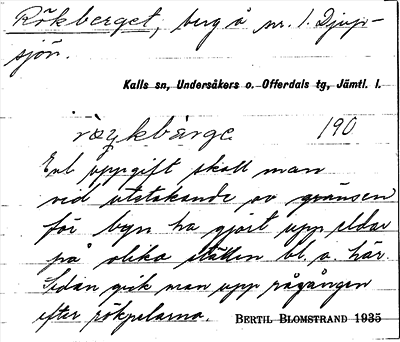 Rökberget, berg å nr. 1. Djup-
sjön.
Kalls sn, Undersåkers o. Offerdals tg, Jämtl. l.
190
Enl uppgift skall man
vid utstakande av gränsen
för byn ha gjort upp eldar
på olika ställen bl. a. här.
Sedan gick man upp rågången
efter rökpelarna. BERTIL BLOMSTRAND 1935